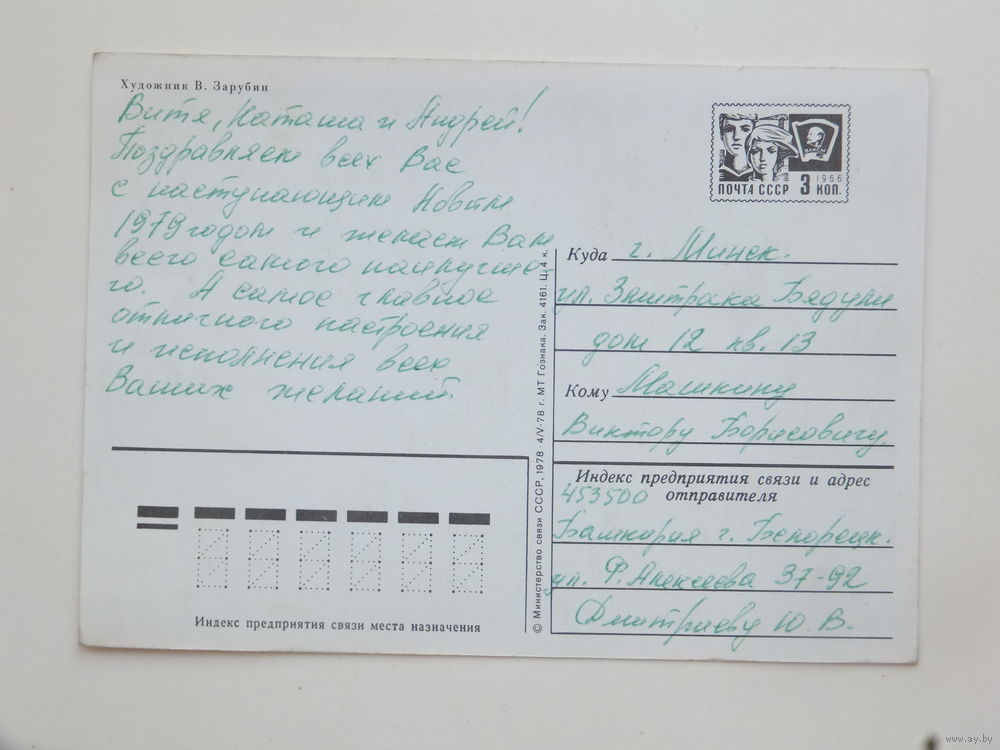 Художник В. Зарубин
Витя, Наташа и Андрей!
Поздравляем всех Вас
с наступающим Новым
1979 годом и желаем Вам
всего самого наилучше
го. А самое главное
отличного настроения
и исполнения всех
Ваших желаний.
Индекс предприятия связи места назначения
© Министерство связи СССР, 1978 · 4/V-78 г. МТ Гознака. Зак. 4161. Ц. 4 к.
ВЛКСМ
1966
ПОЧТА СССР 3 КОП.
Куда г. Минск.
ул. Змитрака Бядули
дом 12 кв. 13
Кому Машкину
Виктору Борисовичу
Индекс предприятия связи и адрес
453500 отправителя
Башкирия г. Белорецк.
ул. Ф. Алексеева 37-92
Дмитриеву Ю. В.
www.ay.by